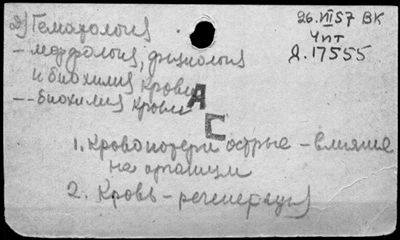 2) Гематология
26.VII57 ВК
Чпт
Д.17555
- морфология, физиология
и биохимия крови
-- Биохимия крови
А
С
1. Кровопотери острые - влияние
на организм
2. Кровь - регенерация